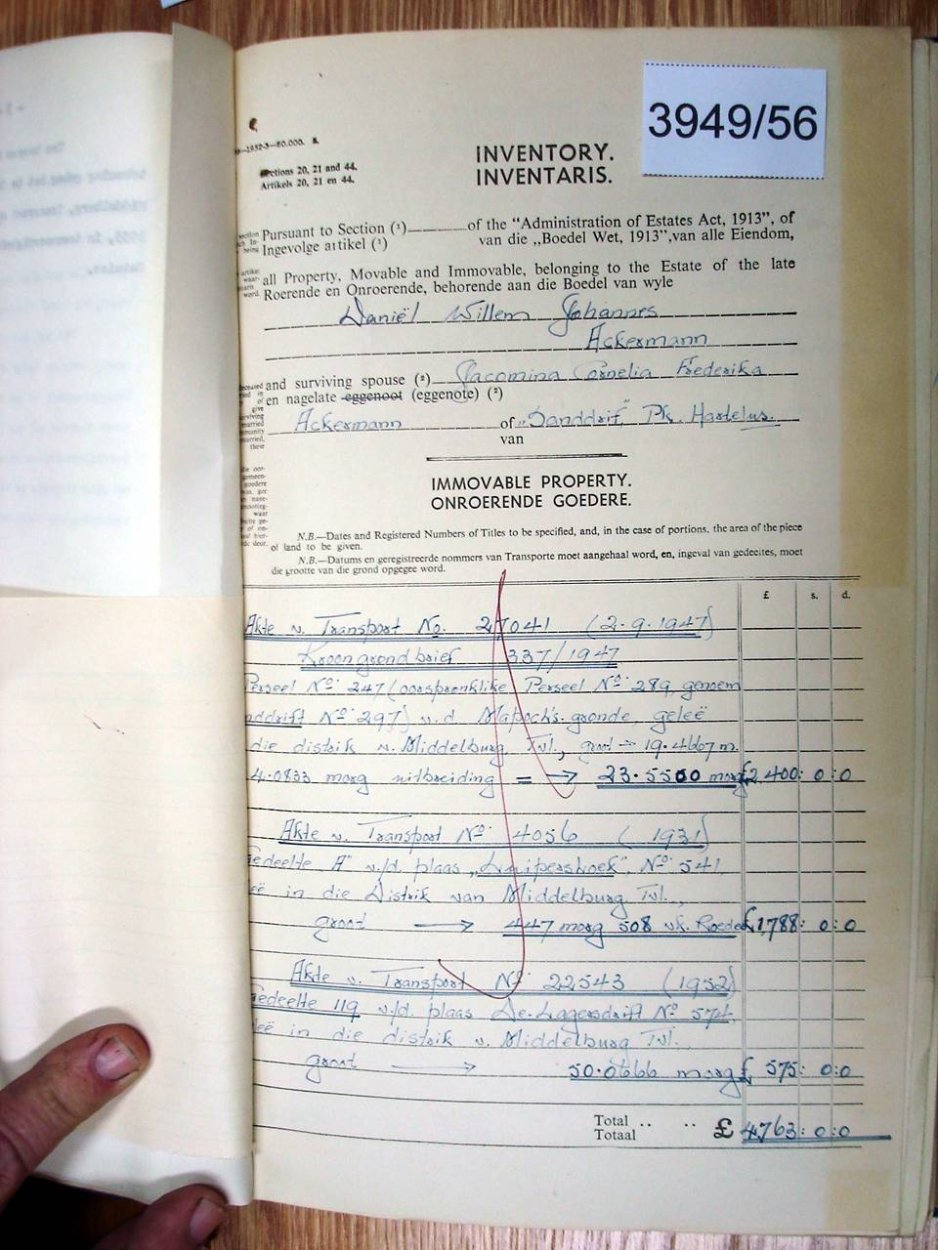 3949/56
1952-3—80,000. S.
ctions 20, 21 and 44.
Artikels 20, 21 en 44.
INVENTORY.
INVENTARIS.
Pursuant to Section (¹)———of the "Administration of Estates Act, 1913", of
Ingevolge artikel (¹) van die „Boedel Wet, 1913",van alle Eiendom,
all Property, Movable and Immovable, belonging to the Estate of the late
Roerende en Onroerende, behorende aan die Boedel van wyle
Daniël Willem Johannes
Ackermann
and surviving spouse (²) Jacomina Cornelia Frederika
en nagelate eggenoot (eggenote) (²)
Ackermann of „Sanddrif" Pk. Hartelus.
van
IMMOVABLE PROPERTY.
ONROERENDE GOEDERE.
N.B.—Dates and Registered Numbers of Titles to be specified, and, in the case of portions, the area of the piece
of land to be given.
N.B.—Datums en geregistreerde nommers van Transporte moet aangehaal word, en, ingeval van gedeeltes, moet
die grootte van die grond opgegee word.
£ s. d.
Akte v. Transport No. 27041 (2.9.1947)
Kroongrondbrief 337/1947
Perseel No. 247 (oorspronklike Perseel No. 289 genoem
nddrift No. 297) v.d. Mapoch's gronde, geleë
die distrik v. Middelburg, Tvl., groot → 19.4667 m.
4.0833 morg uitbreiding = → 23.5500 morg £2,400: 0:0
Akte v. Transport No. 4056 (1931)
edeelte A" v/d. plaas „Kuipershoek", No. 541,
eë in die Distrik van Middelburg Tvl.,
groot → 447 morg 508 vk. Roedes £1,788: 0:0
Akte v. Transport No. 22543 (1952)
edeelte 119 v/d. plaas De Lagersdrift No. 574,
eë in die distrik v. Middelburg Tvl.,
groot → 50.0666 morg £ 575: 0:0
Total .. .. £ 4763: 0:0
Totaal